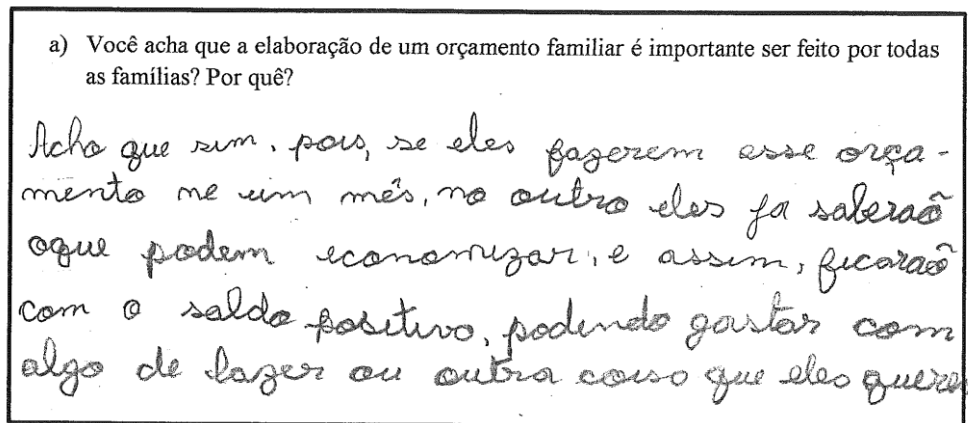 a) Você acha que a elaboração de um orçamento familiar é importante ser feito por todas
as famílias? Por quê?
Acho que sim, pois, se eles fazerem esse orça-
mento me um mês, no outro eles ja saberaõ
oque podem economizar, e assim, ficaraõ
com o saldo positivo, podendo gastar com
algo de lazer ou outra coiso que eles quere